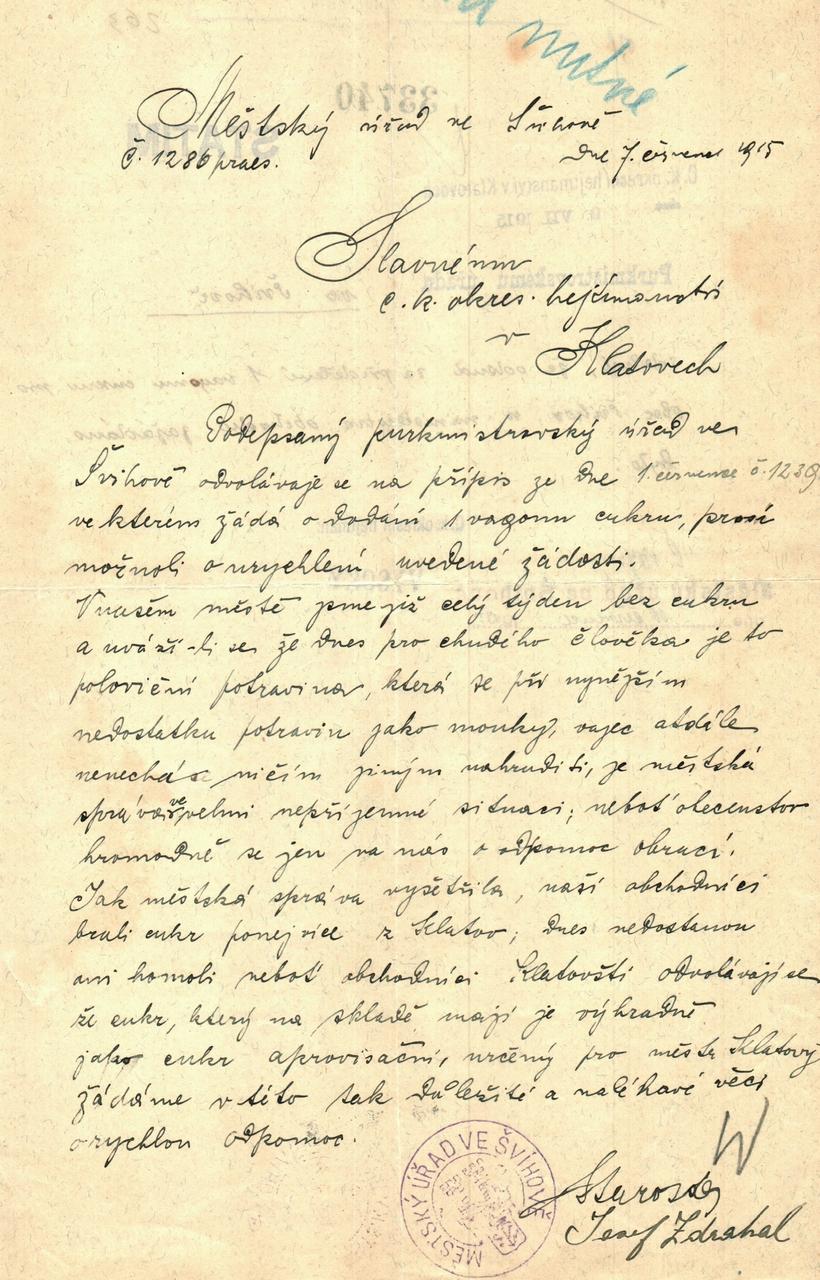 nutné
Městský úřad ve Švihově
č. 1286 praes.
dne 7. července 1915
Slavnému
c. k. okres. hejtmanství
v
Klatovech
Podepsaný purkmistrovský úřad ve
Švihově odvolávaje se na přípis ze dne 1. července č. 1239
ve kterém žádá o dodání 1 vagonu cukru, prosí
možnoli o urychlení uvedené žádosti.
V našem městě jsme již celý týden bez cukru
a uváží-li se že dnes pro chudého člověka je to
poloviční potravina, která se při nynějším
nedostatku potravin jako mouky, vajec atdále
nenechá se ničím jiným nahraditi, je městská
správa ve velmi nepříjemné situaci; neboť obecenstvo
hromadně se jen na nás o odpomoc obrací.
Jak městská správa vyšetřila, naši obchodníci
brali cukr ponejvíce z Klatov; dnes nedostanou
ani homoli neboť obchodníci Klatovští odvolávají se
že cukr, který na skladě mají je výhradně
jako cukr aprovisační, určený pro město Klatovy
žádáme v této tak důležité a naléhavé věci
o rychlou odpomoc.
MĚSTSKÝ ÚŘAD VE ŠVÍHOVĚ
Starosta
Josef Zdrahal